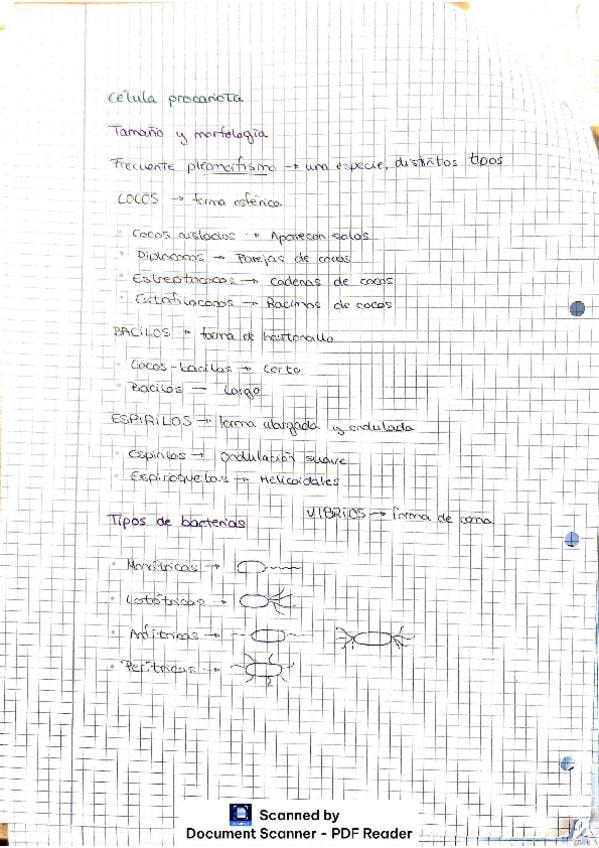 Célula procariota
Tamaño y morfología
Frecuente pleomorfismo → una especie, distintos tipos
COCOS → forma esférica
· Cocos aislados → Aparecen solos
· Diplococos → Parejas de cocos
· Estreptococos → Cadenas de cocos
· Estafilococos → Racimos de cocos
BACILOS → forma de bastoncillo
· Cocos-bacilos → Corto
· Bacilos → Largo
ESPIRILOS → forma alargada y ondulada
· Espirilos → Ondulación suave
· Espiroquetas → Helicoidales
VIBRIOS → forma de coma
Tipos de bacterias
· Monótricas →
· Lofótricas →
· Anfítricas →
· Perítricas →
Scanned by
Document Scanner - PDF Reader